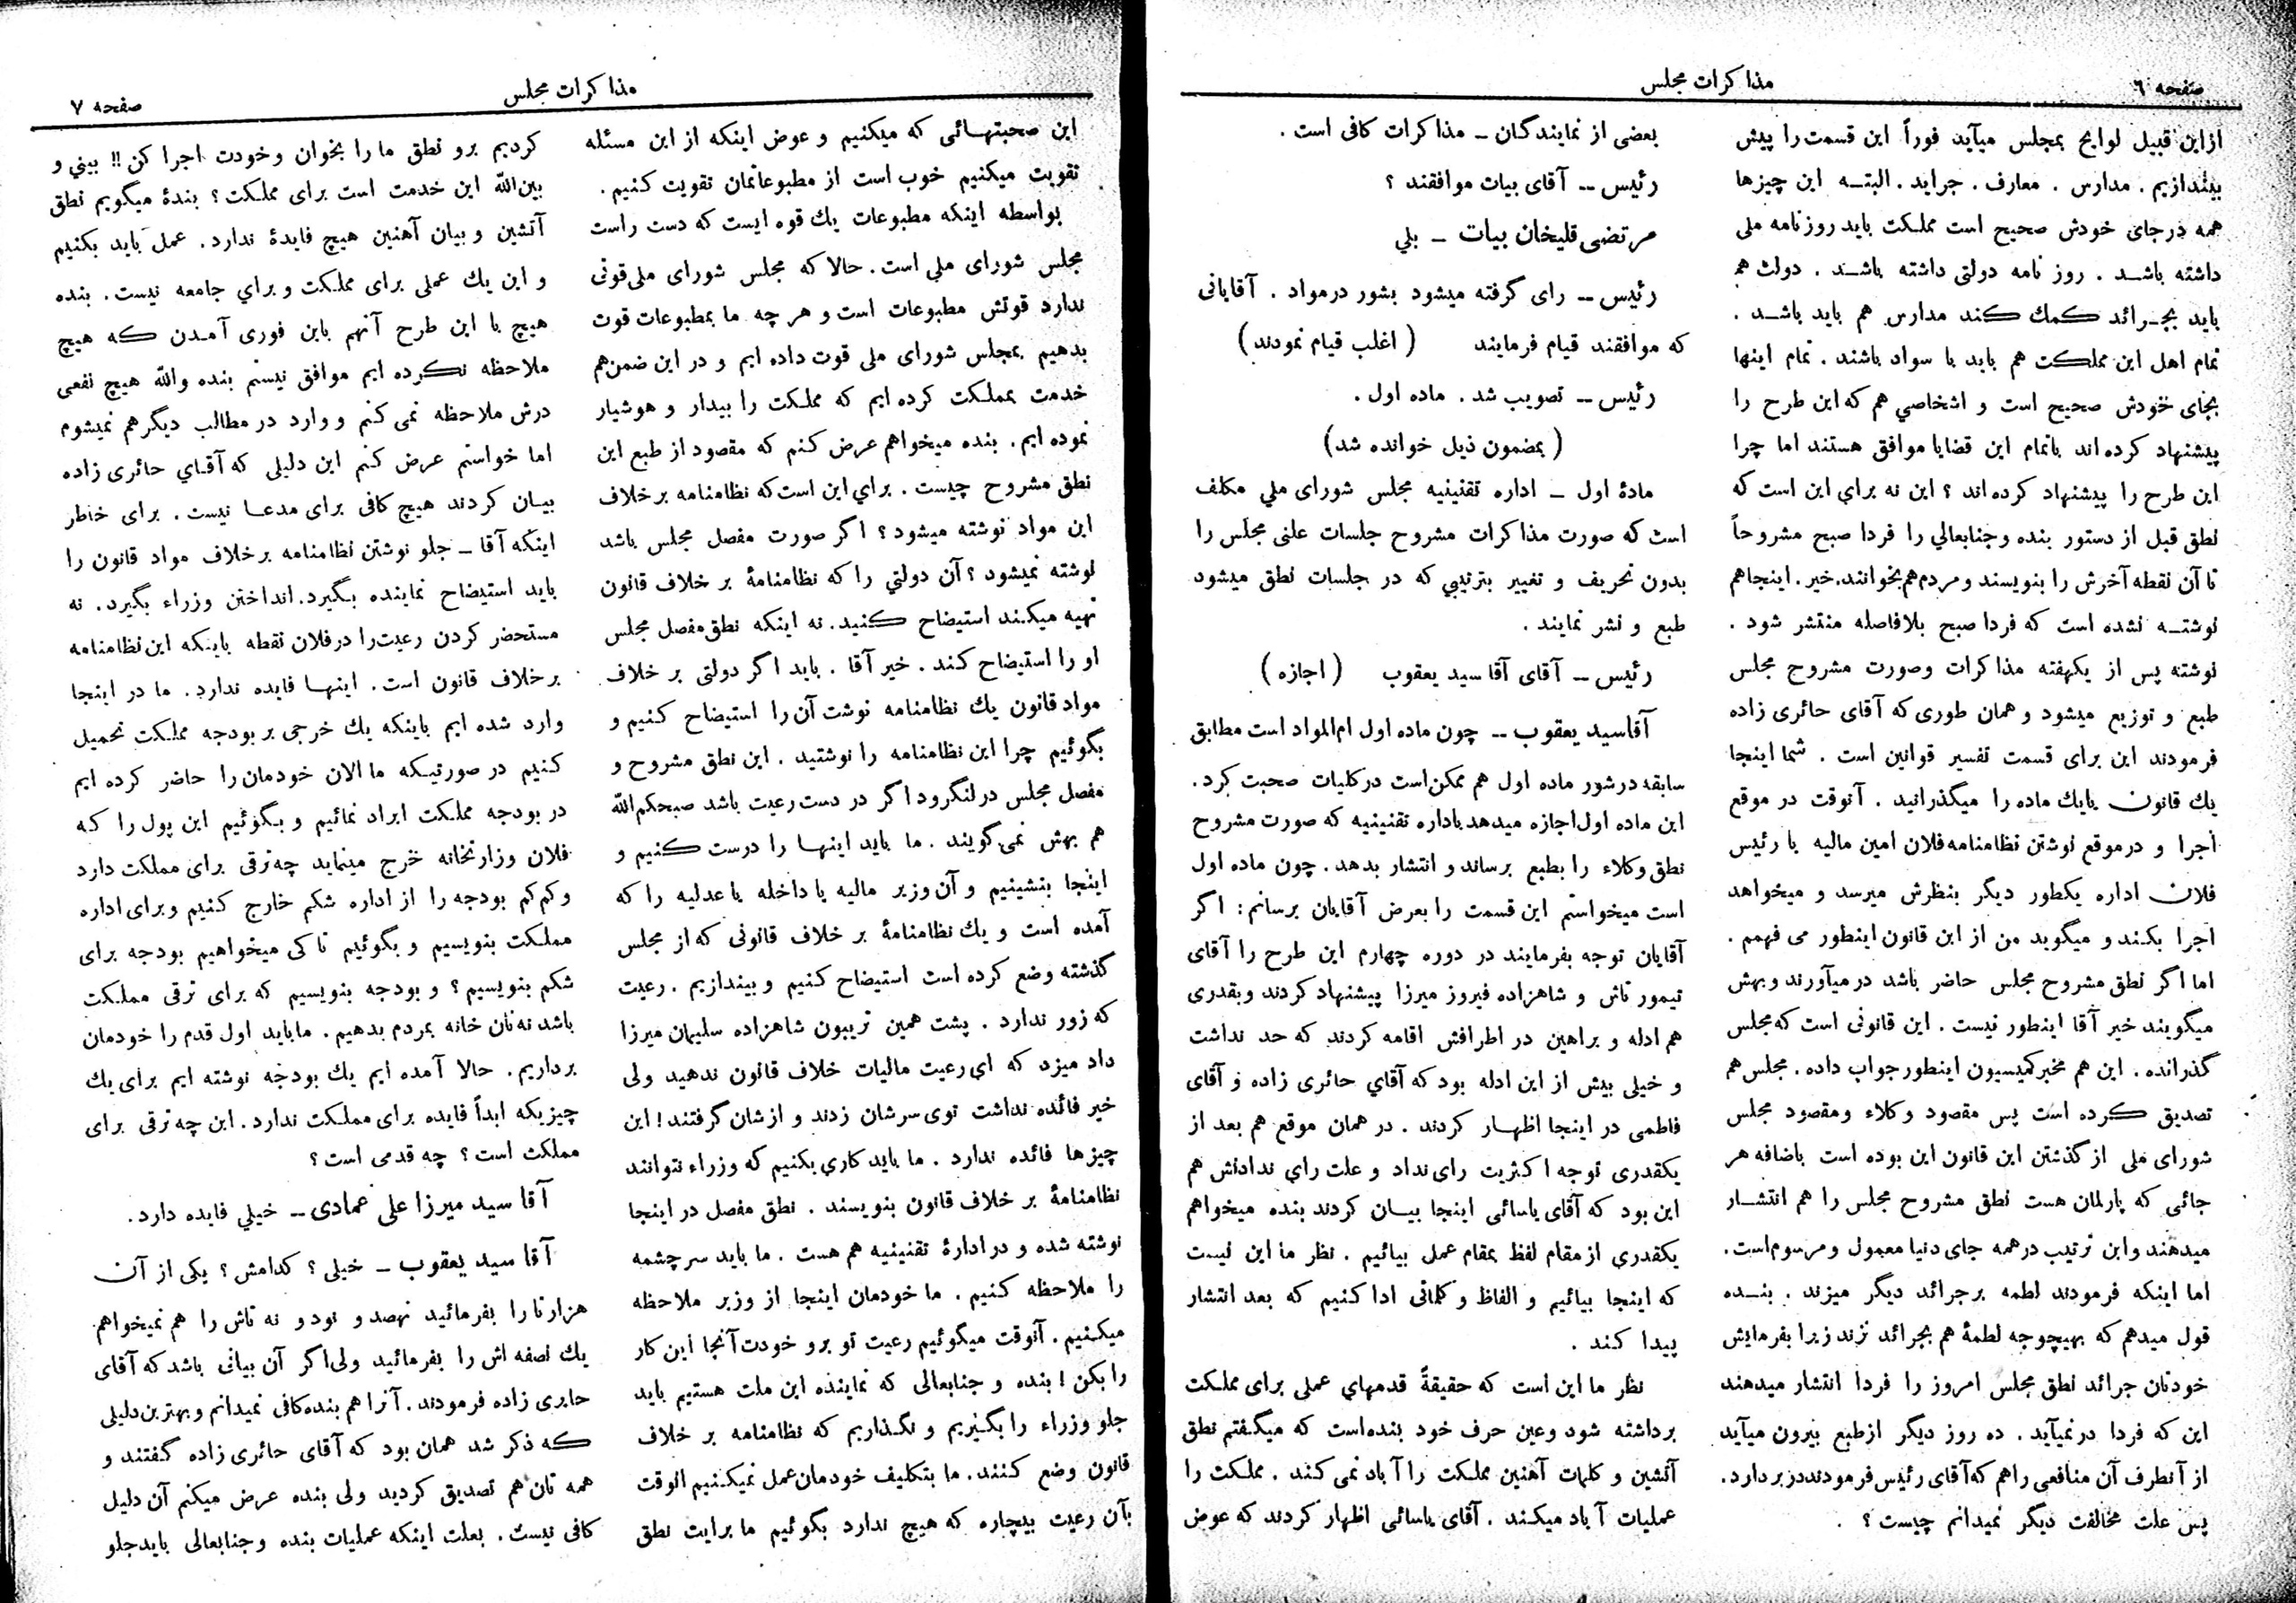 صفحه ٦
مذاکرات مجلس
ازاین قبیل لوایح بمجلس میآید فوراً این قسمت را پیش
بیندازیم . مدارس . معارف . جراید . البته این چیزها
همه درجای خودش صحیح است مملکت باید روزنامه ملی
داشته باشد . روز نامه دولتی داشته باشد . دولت هم
باید بجرائد کمك کند مدارس هم باید باشد .
تمام اهل این مملکت هم باید با سواد باشند . تمام اینها
بجای خودش صحیح است و اشخاصی هم که این طرح را
پیشنهاد کرده اند باتمام این قضایا موافق هستند اما چرا
این طرح را پیشنهاد کرده اند ؟ این نه برای این است که
نطق قبل از دستور بنده وجنابعالی را فردا صبح مشروحاً
تا آن نقطه آخرش را بنویسند ومردم هم بخوانند. خیر . اینجاهم
نوشته نشده است که فردا صبح بلافاصله منتشر شود .
نوشته پس از یکهفته مذاکرات وصورت مشروح مجلس
طبع و توزیع میشود و همان طوری که آقای حائری زاده
فرمودند این برای قسمت تفسیر قوانین است . شما اینجا
یك قانون یایك ماده را میگذرانید . آنوقت در موقع
اجرا و درموقع نوشتن نظامنامه فلان امین مالیه یا رئیس
فلان اداره یکطور دیگر بنظرش میرسد و میخواهد
اجرا بکند و میگوید من از این قانون اینطور می فهمم .
اما اگر نطق مشروح مجلس حاضر باشد در میآورند وبهش
میگویند خیر آقا اینطور نیست . این قانونی است که مجلس
گذرانده . این هم مخبر کمیسیون اینطور جواب داده . مجلس هم
تصدیق کرده است پس مقصود وکلاء ومقصود مجلس
شورای ملی از گذشتن این قانون این بوده است باضافه هر
جائی که پارلمان هست نطق مشروح مجلس را هم انتشار
میدهند واین ترتیب درهمه جای دنیا معمول ومرسوم است.
اما اینکه فرمودند لطمه بر جرائد دیگر میزند . بنده
قول میدهم که بهیچوجه لطمهٔ هم بجرائد نزند زیرا بفرمایش
خودتان جرائد نطق مجلس امروز را فردا انتشار میدهند
این که فردا در نمیآید . ده روز دیگر از طبع بیرون میآید
از آنطرف آن منافعی راهم که آقای رئیس فرمودند در بردارد.
پس علت مخالفت دیگر نمیدانم چیست ؟
بعضی از نمایندگان ـ مذاکرات کافی است .
رئیس ــ آقای بیات موافقند ؟
مرتضی قلیخان بیات ـ بلی
رئیس ــ رای گرفته میشود بشور درمواد . آقایانی
که موافقند قیام فرمایند ( اغلب قیام نمودند )
رئیس ــ تصویب شد . ماده اول .
( بمضمون ذیل خوانده شد )
مادهٔ اول ـ اداره تقنینیه مجلس شورای ملی مکلف
است که صورت مذاکرات مشروح جلسات علنی مجلس را
بدون تحریف و تغییر بترتیبی که در جلسات نطق میشود
طبع و نشر نمایند .
رئیس ــ آقای آقا سید یعقوب ( اجازه )
آقاسید یعقوب ــ چون ماده اول ام المواد است مطابق
سابقه درشور ماده اول هم ممکن است در کلیات صحبت کرد .
این ماده اول اجازه میدهد باداره تقنینیه که صورت مشروح
نطق وکلاء را بطبع برساند و انتشار بدهد . چون ماده اول
است میخواستم این قسمت را بعرض آقایان برسانم : اگر
آقایان توجه بفرمایند در دوره چهارم این طرح را آقای
تیمور تاش و شاهزاده فیروز میرزا پیشنهاد کردند و بقدری
هم ادله و براهین در اطرافش اقامه کردند که حد نداشت
و خیلی بیش از این ادله بود که آقای حائری زاده و آقای
فاطمی در اینجا اظهار کردند . در همان موقع هم بعد از
یکقدری توجه اکثریت رای نداد و علت رای ندادنش هم
این بود که آقای یاسائی اینجا بیان کردند بنده میخواهم
یکقدری از مقام لفظ بمقام عمل بیائیم . نظر ما این نیست
که اینجا بیائیم و الفاظ و کلماتی ادا کنیم که بعد انتشار
پیدا کند .
نظر ما این است که حقیقةً قدمهای عملی برای مملکت
برداشته شود وعین حرف خود بنده است که میگفتم نطق
آتشین و کلمات آهنین مملکت را آباد نمی کند . مملکت را
عملیات آباد میکند . آقای یاسائی اظهار کردند که عوض
مذاکرات مجلس
صفحه ٧
این صحبتهائی که میکنیم و عوض اینکه از این مسئله
تقویت میکنیم خوب است از مطبوعاتمان تقویت کنیم .
بواسطه اینکه مطبوعات یك قوه ایست که دست راست
مجلس شورای ملی است . حالا که مجلس شورای ملی قوتی
ندارد قوتش مطبوعات است و هر چه ما بمطبوعات قوت
بدهیم بمجلس شورای ملی قوت داده ایم و در این ضمن هم
خدمت بمملکت کرده ایم که مملکت را بیدار و هوشیار
نموده ایم . بنده میخواهم عرض کنم که مقصود از طبع این
نطق مشروح چیست . برای این است که نظامنامه بر خلاف
این مواد نوشته میشود ؟ اگر صورت مفصل مجلس باشد
نوشته نمیشود ؟ آن دولتی را که نظامنامهٔ بر خلاف قانون
تهیه میکند استیضاح کنید . نه اینکه نطق مفصل مجلس
او را استیضاح کند . خیر آقا . باید اگر دولتی بر خلاف
مواد قانون یك نظامنامه نوشت آن را استیضاح کنیم و
بگوئیم چرا این نظامنامه را نوشتید . این نطق مشروح و
مفصل مجلس در لنگرود اگر در دست رعیت باشد صبحکم الله
هم بهش نمی گویند . ما باید اینها را درست کنیم و
اینجا بنشینیم و آن وزیر مالیه یا داخله یا عدلیه را که
آمده است و یك نظامنامهٔ بر خلاف قانونی که از مجلس
گذشته وضع کرده است استیضاح کنیم و بیندازیم . رعیت
که زور ندارد . پشت همین تریبون شاهزاده سلیمان میرزا
داد میزد که ای رعیت مالیات خلاف قانون ندهید ولی
خیر فائده نداشت توی سرشان زدند و ازشان گرفتند ! این
چیزها فائده ندارد . ما باید کاری بکنیم که وزراء نتوانند
نظامنامهٔ بر خلاف قانون بنویسند . نطق مفصل در اینجا
نوشته شده و در ادارهٔ تقنینیه هم هست . ما باید سر چشمه
را ملاحظه کنیم . ما خودمان اینجا از وزیر ملاحظه
میکنیم . آنوقت میگوئیم رعیت تو برو خودت آنجا این کار
را بکن ! بنده و جنابعالی که نماینده این ملت هستیم باید
جلو وزراء را بگیریم و نگذاریم که نظامنامه بر خلاف
قانون وضع کنند. ما بتکلیف خودمان عمل نمیکنیم آنوقت
بآن رعیت بیچاره که هیچ ندارد بگوئیم ما برایت نطق
کردیم برو نطق ما را بخوان وخودت اجرا کن !! بینی و
بین الله این خدمت است برای مملکت ؟ بندهٔ میگویم نطق
آتشین و بیان آهنین هیچ فایدهٔ ندارد . عمل باید بکنیم
و این یك عملی برای مملکت و برای جامعه نیست . بنده
هیچ با این طرح آنهم باین فوری آمدن که هیچ
ملاحظه نکرده ایم موافق نیستم بنده والله هیچ نفعی
درش ملاحظه نمی کنم و وارد در مطالب دیگر هم نمیشوم
اما خواستم عرض کنم این دلیلی که آقای حائری زاده
بیان کردند هیچ کافی برای مدعا نیست . برای خاطر
اینکه آقا ـ جلو نوشتن نظامنامه بر خلاف مواد قانون را
باید استیضاح نماینده بگیرد . انداختن وزراء بگیرد . نه
مستحضر کردن رعیت را در فلان نقطه باینکه این نظامنامه
بر خلاف قانون است . اینها فایده ندارد . ما در اینجا
وارد شده ایم باینکه یك خرجی بر بودجه مملکت تحمیل
کنیم در صورتیکه ما الان خودمان را حاضر کرده ایم
در بودجه مملکت ایراد نمائیم و بگوئیم این پول را که
فلان وزارتخانه خرج مینماید چه ترقی برای مملکت دارد
و کم کم بودجه را از اداره شکم خارج کنیم و برای اداره
مملکت بنویسیم و بگوئیم تا کی میخواهیم بودجه برای
شکم بنویسیم ؟ و بودجه بنویسیم که برای ترقی مملکت
باشد نه نان خانه بمردم بدهیم . ماباید اول قدم را خودمان
برداریم . حالا آمده ایم یك بودجه نوشته ایم برای یك
چیزیکه ابداً فایده برای مملکت ندارد . این چه ترقی برای
مملکت است ؟ چه قدمی است ؟
آقا سید میرزا علی عمادی ــ خیلی فایده دارد .
آقا سید یعقوب ـ خیلی ؟ کدامش ؟ یکی از آن
هزارتا را بفرمائید نهصد و نود و نه تاش را هم نمیخواهم
یك نصفه اش را بفرمائید ولی اگر آن بیانی باشد که آقای
حایری زاده فرمودند . آنرا هم بنده کافی نمیدانم و بهترین دلیلی
که ذکر شد همان بود که آقای حائری زاده گفتند و
همه تان هم تصدیق کردید ولی بنده عرض میکنم آن دلیل
کافی نیست . بعلت اینکه عملیات بنده و جنابعالی باید جلو